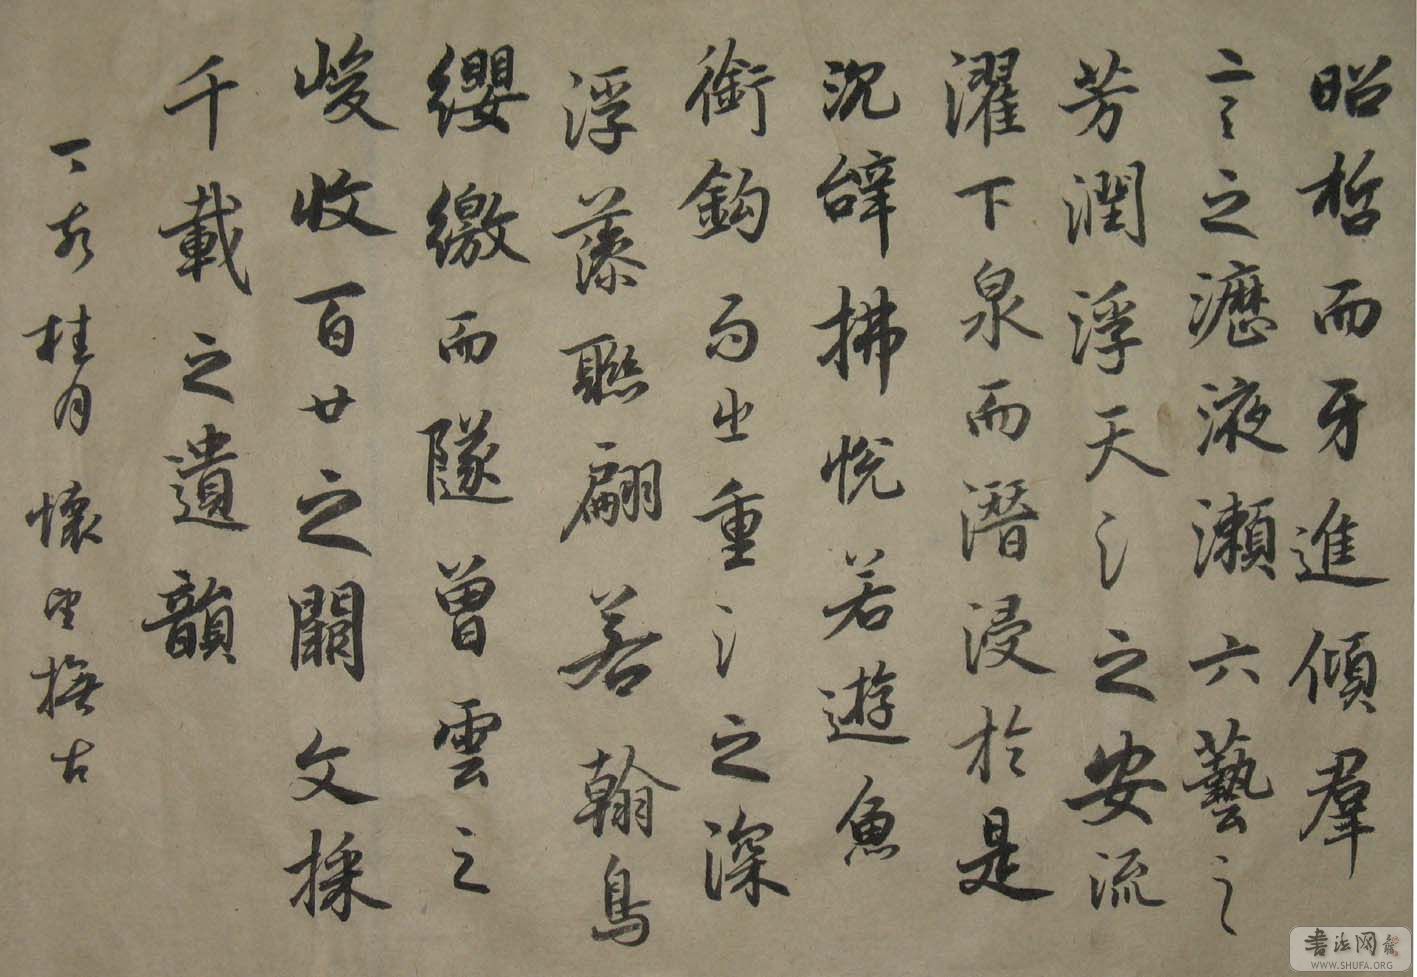 昭晢而牙進傾羣
言之瀝液瀬六藝之
芳潤浮天氵之安流
濯下泉而潛浸於是
沉辭拂悅若遊魚
銜鈎而出重氵之深
浮藻聯翩若翰鳥
纓繳而隧曾雲之
峻收百廿之闕文採
千載之遺韻
丁亥桂月懷望撫古
書法网
WWW.SHUFA.ORG